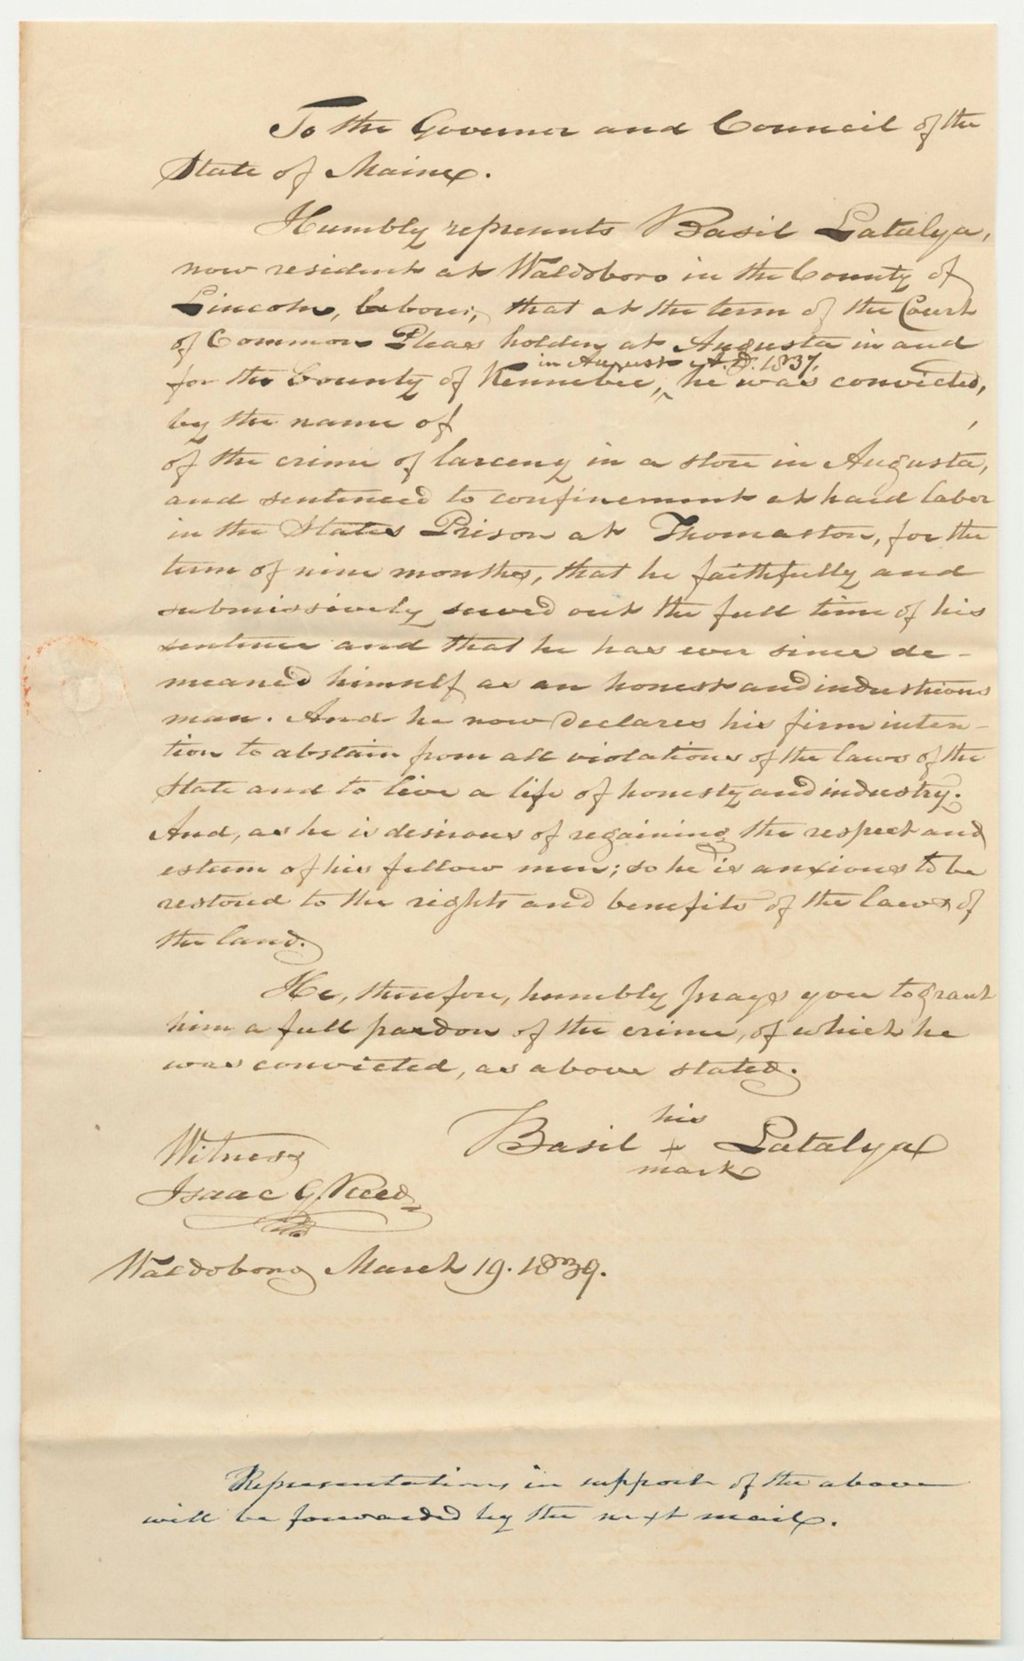 To the Governor and Council of the
State of Maine.
Humbly represents Basil Latalya,
now resident at Waldoboro in the County of
Lincoln, laborer, that at the term of the Court
of Common Pleas holden at Augusta in and
in August A.D. 1837,
for the County of Kennebec, ^ he was convicted,
by the name of ,
of the crime of larceny in a store in Augusta,
and sentenced to confinement at hard labor
in the States Prison at Thomaston, for the
term of nine months, that he faithfully and
submissively served out the full time of his
sentence and that he has ever since de-
meaned himself as an honest and industrious
man. And he now declares his firm inten-
tion to abstain from all violations of the laws of the
State and to live a life of honesty and industry.
And, as he is desirous of regaining the respect and
esteem of his fellow men; so he is anxious to be
restored to the rights and benefits of the laws of
the land.
He, therefore, humbly prays you to grant
him a full pardon of the crime, of which he
was convicted, as above stated.
his
Basil + Latalya
mark
Witness
Isaac G. Reed
Waldoboro March 19. 1839.
Representations in support of the above
will be forwarded by the next mail.